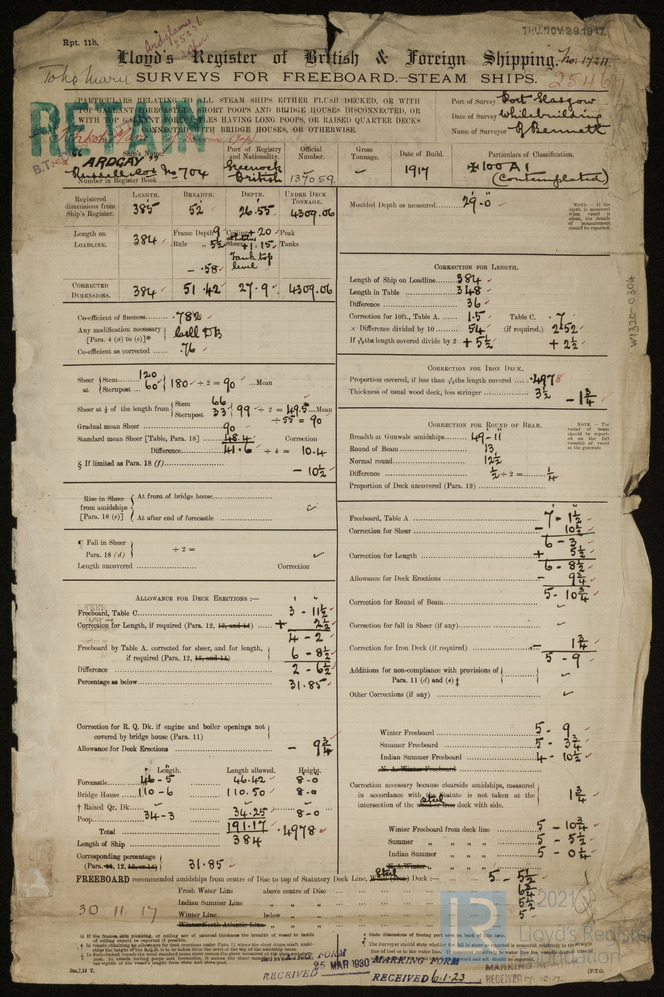 Rpt. 11b.
THU. NOV. 29 1917
Lloyd's Register of British & Foreign Shipping.
No. 17211
SURVEYS FOR FREEBOARD.—STEAM SHIPS.
RETAIN
PARTICULARS RELATING TO ALL STEAM SHIPS EITHER FLUSH DECKED, OR WITH
TOP GALLANT FORECASTLES, SHORT POOPS AND BRIDGE HOUSES DISCONNECTED, OR
WITH TOP GALLANT FORECASTLES HAVING LONG POOPS, OR RAISED QUARTER DECKS
CONNECTED WITH BRIDGE HOUSES, OR OTHERWISE.
Port of Survey Port Glasgow
Date of Survey Whilst building
Name of Surveyor G Bennett
Ship's Name "ARDGAY"
Russell & Co No 704
Number in Register Book
Port of Registry and Nationality. Greenock British
Official Number. 137059
Gross Tonnage.
Date of Build. 1917
Particulars of Classification. 100 A1 (Contemplated)
LENGTH. BREADTH. DEPTH. UNDER DECK TONNAGE.
Registered dimensions from Ship's Register. 385 52 26.55 4309.06
Length on LOADLINE. 384 Frame Depth 9 +.20 Peak
Rule 5½ +1.15 Tanks
-.58 Tank top level
CORRECTED DIMENSIONS. 384 51.42 27.9 4309.06
Co-efficient of fineness 782
Any modification necessary [Para. 4 (a) to (e)]* Cell DB
Co-efficient as corrected .76
Sheer at Stem 120 Sternpost 60 180 ÷ 2 = 90 Mean
Sheer at ⅛ of the length from Stem 66 Sternpost 33 99 ÷ 2 = 49.5 Mean
÷ 55 = 90
Gradual mean Sheer 90
Standard mean Sheer [Table, Para. 18] 48.4 Correction
Difference 41.6 ÷ 4 = 10.4
§ If limited as Para. 18 (f) - 10½
Rise in Sheer from amidships [Para. 18 (e)]
At front of bridge house
At after end of forecastle
¶ Fall in Sheer Para. 18 (d) ÷ 2 =
Length uncovered Correction
ALLOWANCE FOR DECK ERECTIONS :—
Freeboard, Table C 3 - 11½
Correction for Length, if required (Para. 12, 13, and 14) + 2½
4 - 2
Freeboard by Table A. corrected for sheer, and for length, if required (Para. 12, 13, and 14) 6 - 8½
Difference 2 - 6½
Percentage as below 31.85
Correction for R. Q. Dk. if engine and boiler openings not covered by bridge house (Para. 11)
Allowance for Deck Erections - 9¾
Length. Length allowed. Height.
Forecastle 46-5 46.42 8-0
Bridge House 110-6 110.50 8-0
† Raised Qr. Dk.
Poop 34-3 34.25 8-0
Total 191.17 .4978
Length of Ship 384
Corresponding percentage 31.85
Moulded Depth as measured 29-0
CORRECTION FOR LENGTH.
Length of Ship on Loadline 384
Length in Table 348
Difference 36
Correction for 10ft., Table A. 1.5 Table C. .7
× Difference divided by 10 54 (if required.) 2.52
If 6/10ths length covered divide by 2 + 5½ + 2½
CORRECTION FOR IRON DECK.
Proportion covered, if less than 7/10ths length covered .4978
Thickness of usual wood deck, less stringer 3½ - 1¾
CORRECTION FOR ROUND OF BEAM.
Breadth at Gunwale amidships 49-11
Round of Beam 13
Normal round 12½
Difference ½ ÷ 2 = ¼
Proportion of Deck uncovered (Para. 19)
Freeboard, Table A 7 - 1½
Correction for Sheer - 10½
6 - 3
Correction for Length + 5½
6 - 8½
Allowance for Deck Erections - 9¾
5 - 10¾
Correction for Round of Beam
Correction for fall in Sheer (if any)
Correction for Iron Deck (if required) - 1¾
5 - 9
Additions for non-compliance with provisions of Para. 11 (d) and (e) ‡
Other Corrections (if any)
Winter Freeboard 5 - 9
Summer Freeboard 5 - 3¾
Indian Summer Freeboard 4 - 10½
N. A. Winter Freeboard
Correction necessary because clearside amidships, measured in accordance with the Statute is not taken at the intersection of the steel wood or iron deck with side. 1¾
Winter Freeboard from deck line 5 - 10¾
Summer " " " 5 - 5½
Indian Summer " " 5 - 0¼
FREEBOARD recommended amidships from centre of Disc to top of Statutory Deck Line, Steel Deck :— 5 - 5½
Fresh Water Line above centre of Disc
Indian Summer Line
Winter Line below
Winter North Atlantic Line
30 11 17
RECEIVED 25 MAR 1930
MARKING FORM
RECEIVED 6.1.23
W1320-0304
2021
LR
Lloyd's Register Foundation
(P.T.O.)